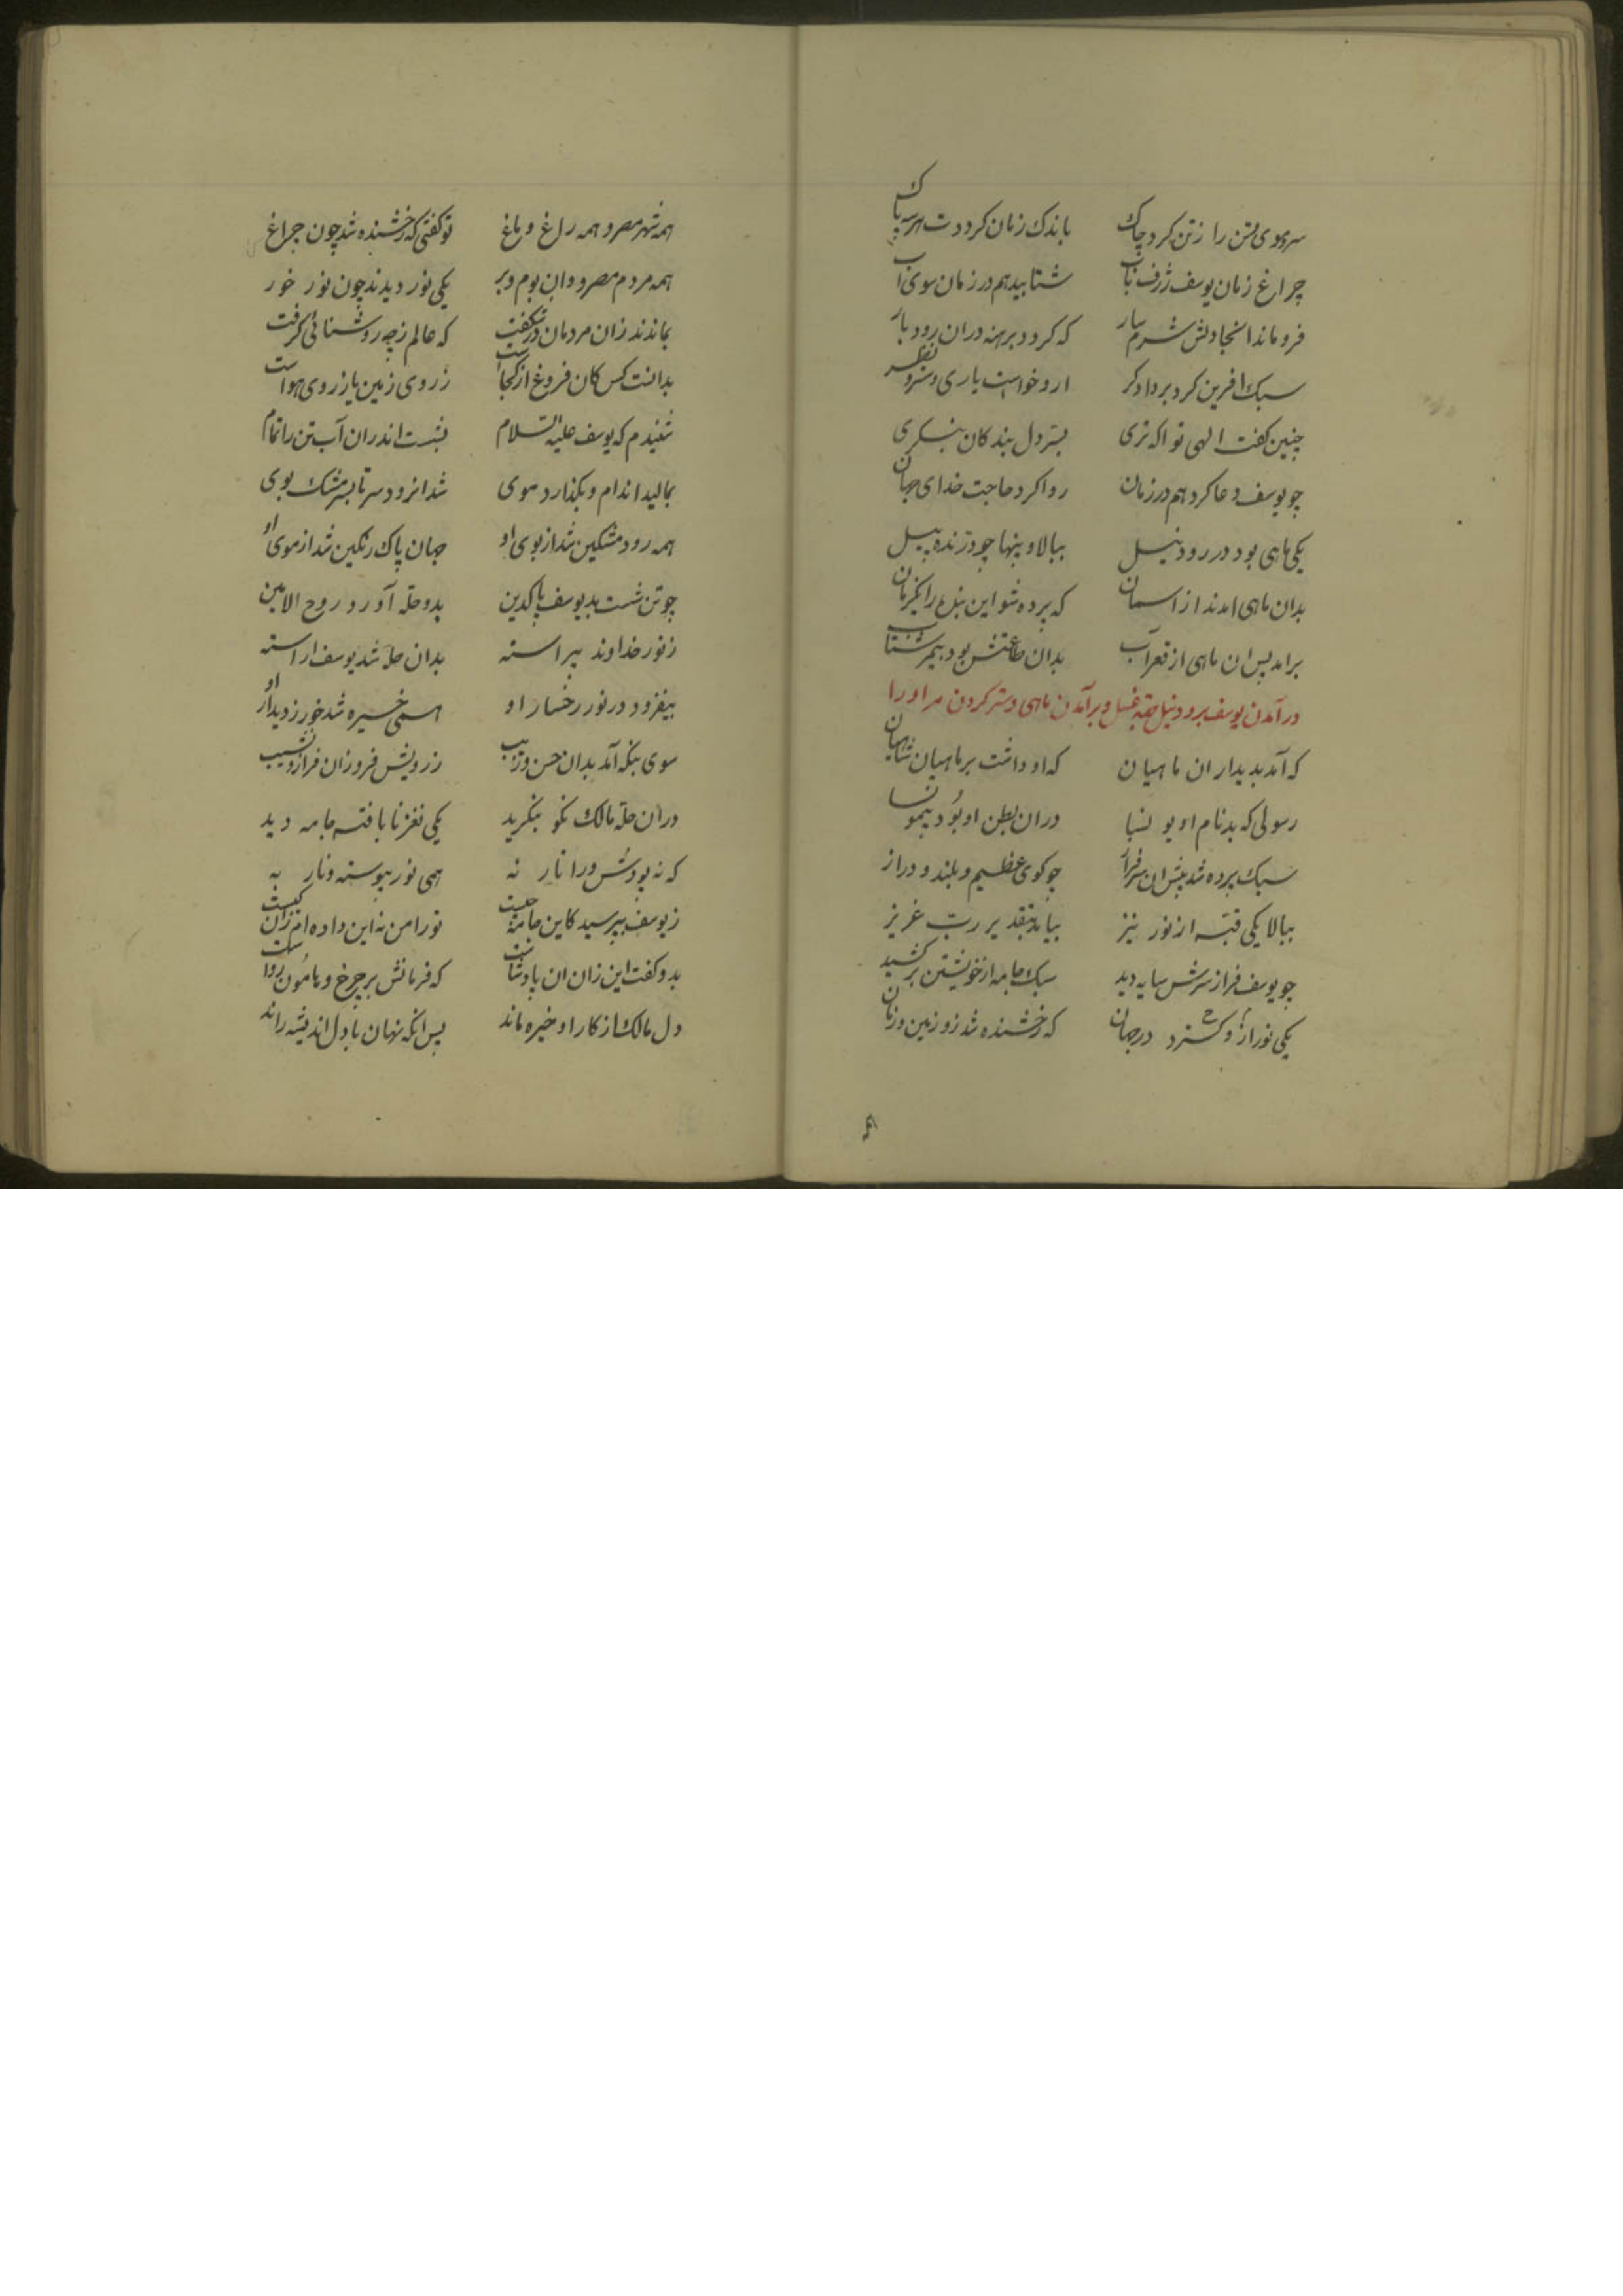 سر موی تن را ز تن کرد چاک باندک زمان کرد دست پاک
چراغ زمان یوسف ژرف یاب شتابید هم در زمان سوی آب
فرو ماند انجا دلش شرم سار که کردد برهنه دران رودبار
سبک افرین کرد بر دادکر ازو خواست یاری و ستر و نظر
چنین کفت الهی تو اکه تری بستر دل بندکان بنکری
چو یوسف دعا کرد هم در زمان روا کرد حاجت خدای جهان
یکی ماهی بود در رود نیل ببالا و پهنا چو درنده پیل
بدان ماهی امد ندا از اسمان که پرده شو این بنده را یکزمان
برامد پس ان ماهی از قعر آب بدان طاعتش بود بیمر شتاب
در آمدن یوسف برود نیل بجهة غسل و برآمدن ماهی و ستر کردن مر او را
که آمد بدیدار ان ماهیان که او داشت بر ماهیان شاهیان
رسولی که بد نام او یو نسا دران بطن او بود بیمونسا
سبک پرده شد پیش ان سرفراز چو کوی عظیم و بلند و دراز
ببالا یکی قبه از نور نیز بیامد بتقدیر رب عزیز
چو یوسف فراز سرش سایه دید سبک جامه از خویشتن بر کشید
یکی نور از و کسترد در جهان که رخشنده شد زو زمین و زمان
همه شهر مصر و همه راغ و باغ تو کفتی که رخشنده شد چون چراغ
همه مردم مصر و وان بوم و بر یکی نور دیدند چون نور خور
بماندند زان مردمان در شکفت که عالم ز چه روشنائی کرفت
بدانست کس کان فروغ از کجاست ز روی زمین یا ز روی هواست
شنیدم که یوسف علیه السلام بشست اندران آب تن را تمام
بمالید اندام و بکذارد موی شد انرود سر تا بسر مشک بوی
همه رود مشکین شد از بوی او جهان پاک رنکین شد از موی او
چو تن شست بد یوسف پاکدین بدو حله آورد روح الامین
ز نور خداوند پیراسته بدان حله شد یوسف اراسته
بیفزود در نور رخسار او همی خیره شد خور ز دیدار او
سوی بنکه آمد بدان حسن و زیب ز رویش فروزان فراز و نشیب
دران حله مالک نکو بنکرید یکی نغز نا بافته جامه دید
که نه پودش ورا تار نه همی نور پیوسته و تار به
ز یوسف بپرسید کاین جامه چیست تو را من نه این داده ام زان کیست
بدو کفت این زان ان پادشاست که فرمانش بر چرخ و هامون رواست
دل مالک از کار او خیره ماند پس انکه نهان با دل اندیشه راند